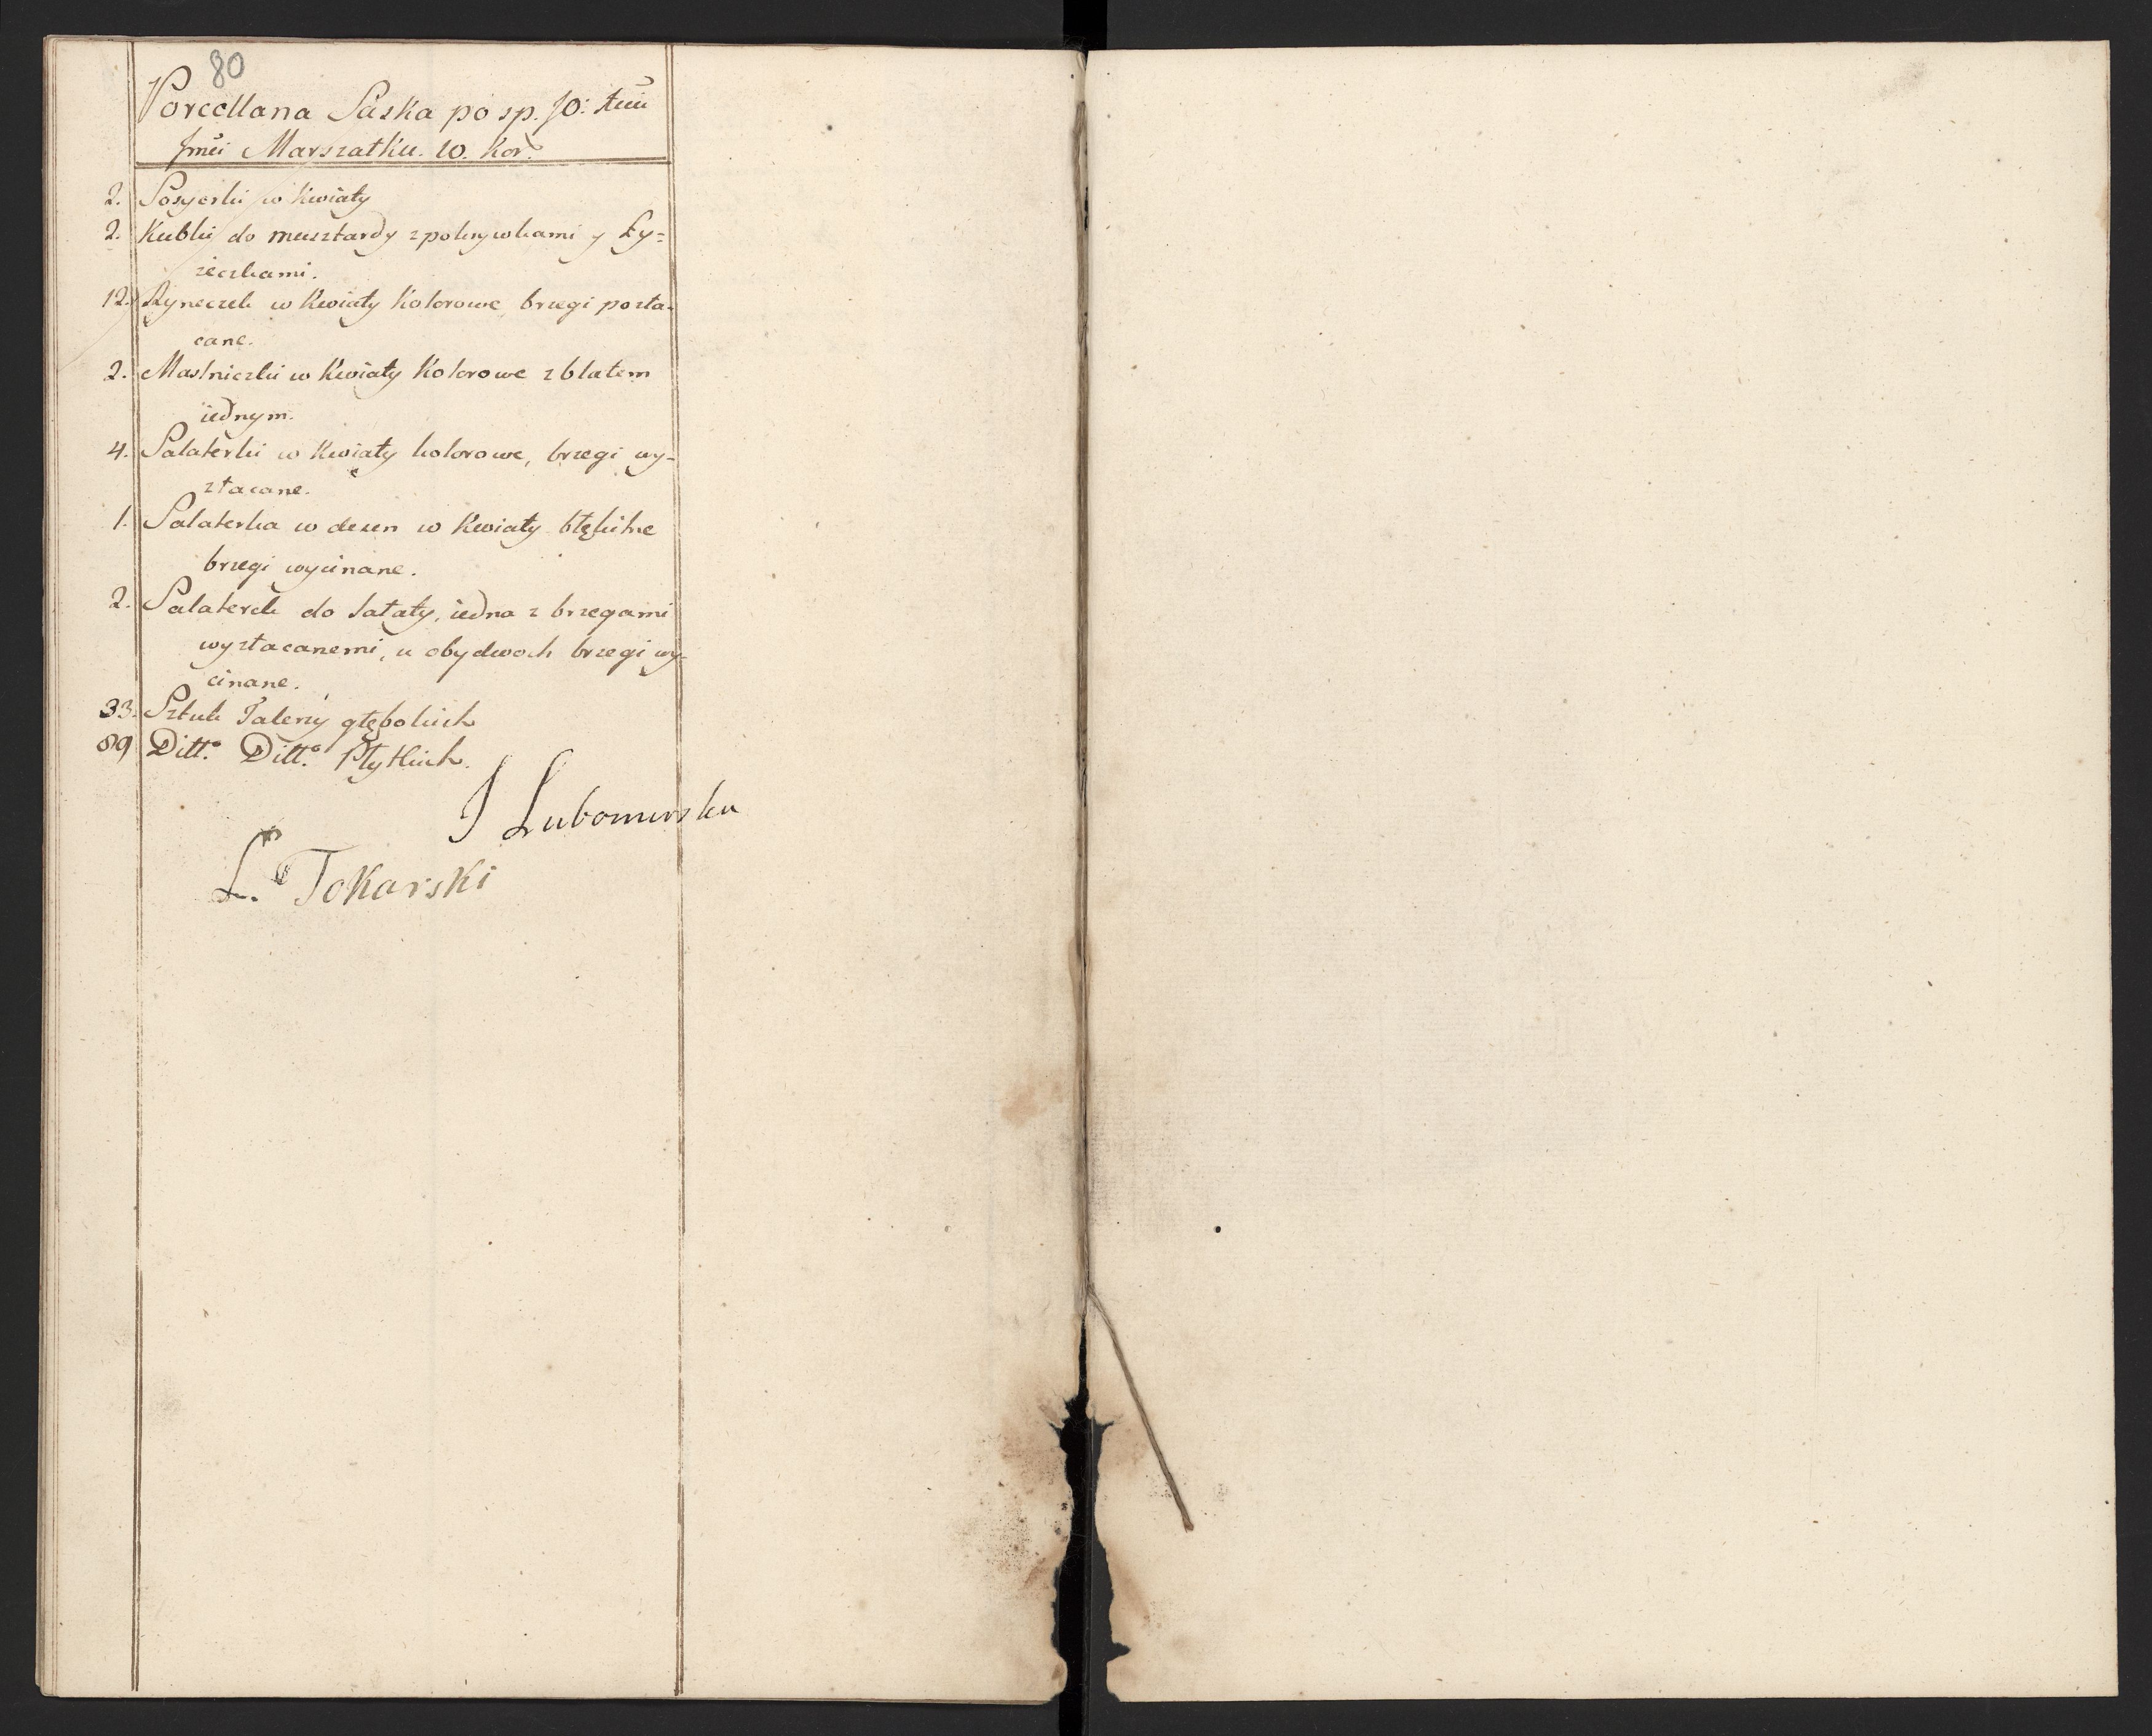 80
Porcellana Saska po sp. JO: Xciu
Jmci Marszałku. W. Kor.
2. Sosyerki w Kwiaty
2. Kubki do musztardy z pokrywkami y Ły=
zieczkami.
12. Ryneczek w Kwiaty Kolorowe, brzegi pozła-
cane.
2. Maslniczki w Kwiaty Kolorowe z blatem
iednym.
4. Salaterki w Kwiaty kolorowe, brzegi wy-
złacane.
1. Salaterka w desen w Kwiaty błękitne
brzegi wycinane.
2. Salaterek do sałaty, iedna z brzegami
wyzłacanemi, u obydwoch brzegi wy-
cinane.
33. Sztuk Talerzy głębokich
89 Ditt.o Ditt.o Płytkich.
J Lubomirska
L. Tokarski